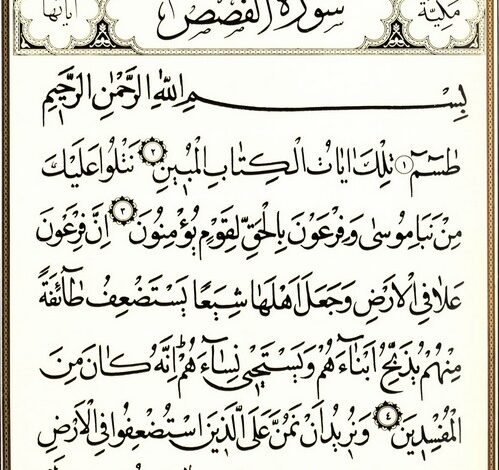 مكية سورة القصص آياتها
بِسْمِ اللّٰهِ الرَّحْمٰنِ الرَّحِيمِ
طٰسٓمٓ ۝١ تِلْكَ اٰيَاتُ الْكِتَابِ الْمُبٖينِ ۝٢ نَتْلُوا عَلَيْكَ
مِنْ نَبَاِ مُوسٰى وَفِرْعَوْنَ بِالْحَقِّ لِقَوْمٍ يُؤْمِنُونَ ۝٣ اِنَّ فِرْعَوْنَ
عَلَا فِي الْاَرْضِ وَجَعَلَ اَهْلَهَا شِيَعًا يَسْتَضْعِفُ طَٓائِفَةً
مِنْهُمْ يُذَبِّحُ اَبْنَٓاءَهُمْ وَيَسْتَحْيٖ نِسَٓاءَهُمْ اِنَّهُ كَانَ مِنَ
الْمُفْسِدٖينَ ۝٤ وَنُرٖيدُ اَنْ نَمُنَّ عَلَى الَّذٖينَ اسْتُضْعِفُوا فِي الْاَرْضِ